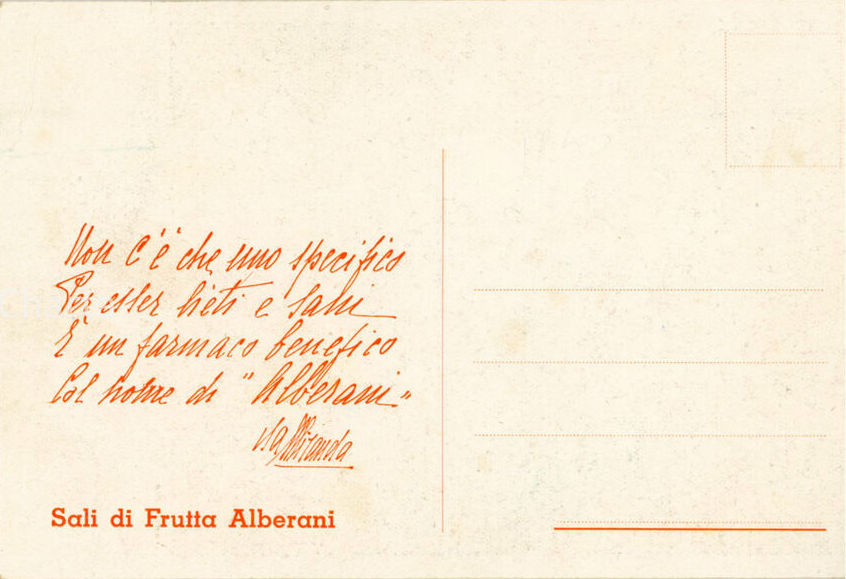 Non c'è che uno specifico
Per esser lieti e sani
È un farmaco benefico
Col nome di "Alberani"
Isa Miranda
Sali di Frutta Alberani